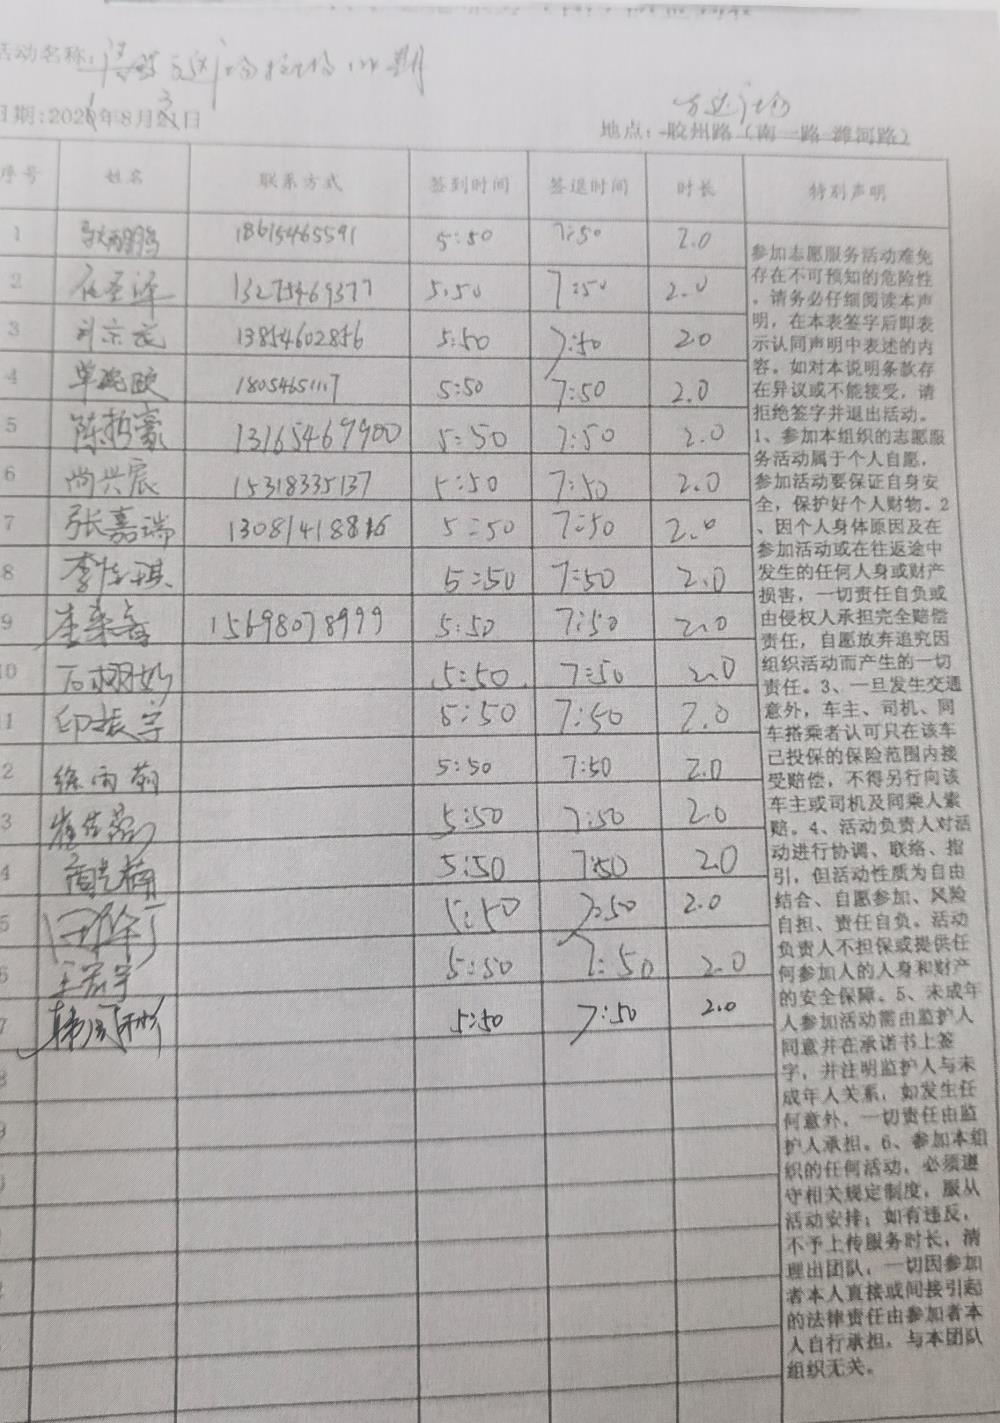 活动名称:
日期:2021年8月3日
地点: 胶州路(南一路-潍河路)
序号 姓名 联系方式 签到时间 签退时间 时长 特别声明
1 18615465591 5:50 7:50 2.0
2 任圣泽 13275469377 5:50 7:50 2.0
3 刘宗元 13854602856 5:50 7:50 2.0
4 单婉欧 18054651117 5:50 7:50 2.0
5 陈哲豪 13165469900 5:50 7:50 2.0
6 尚兴宸 15318335137 5:50 7:50 2.0
7 张嘉瑞 13081418816 5:50 7:50 2.0
8 李佳琪 5:50 7:50 2.0
9 15698078999 5:50 7:50 2.0
10 5:50 7:50 2.0
1 印振宇 5:50 7:50 2.0
2 徐雨菊 5:50 7:50 2.0
3 5:50 7:50 2.0
4 5:50 7:50 2.0
5 5:50 7:50 2.0
6 王宏宇 5:50 7:50 2.0
7 5:50 7:50 2.0
参加志愿服务活动难免
存在不可预知的危险性
,请务必仔细阅读本声
明,在本表签字后即表
示认同声明中表述的内
容。如对本说明条款存
在异议或不能接受,请
拒绝签字并退出活动。
1、参加本组织的志愿服
务活动属于个人自愿,
参加活动要保证自身安
全,保护好个人财物。2
、因个人身体原因及在
参加活动或在往返途中
发生的任何人身或财产
损害,一切责任自负或
由侵权人承担完全赔偿
责任,自愿放弃追究因
组织活动而产生的一切
责任。3、一旦发生交通
意外,车主、司机、同
车搭乘者认可只在该车
已投保的保险范围内接
受赔偿,不得另行向该
车主或司机及同乘人索
赔。4、活动负责人对活
动进行协调、联络、指
引,但活动性质为自由
结合、自愿参加、风险
自担、责任自负。活动
负责人不担保或提供任
何参加人的人身和财产
的安全保障。5、未成年
人参加活动需由监护人
同意并在承诺书上签
字,并注明监护人与未
成年人关系,如发生任
何意外,一切责任由监
护人承担。6、参加本组
织的任何活动,必须遵
守相关规定制度,服从
活动安排;如有违反,
不予上传服务时长,清
理出团队,一切因参加
者本人直接或间接引起
的法律责任由参加者本
人自行承担,与本团队
组织无关。